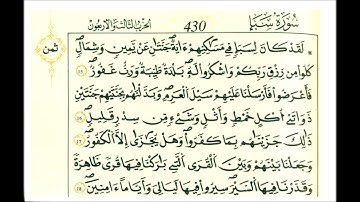 سُورَةُ سَبَإٍ 430 الحزب الثالث والأربعون
ثمن
لَّقَدْ كَانَ لِسَبَإٍ فِي مَسَٰكِنِهِمْ ءَايَةٌ جَنَّتَٰنِ عَنْ يَّمِينٍ وَشِمَالٍ
كُلُوا مِن رِّزْقِ رَبِّكُمْ وَاشْكُرُوا لَهُ بَلْدَةٌ طَيِّبَةٌ وَرَبٌّ غَفُورٌ
فَأَعْرَضُوا فَأَرْسَلْنَا عَلَيْهِمْ سَيْلَ الْعَرِمِ وَبَدَّلْنَٰهُم بِجَنَّتَيْهِمْ جَنَّتَيْنِ
ذَوَاتَيْ أُكْلٍ خَمْطٍ وَأَثْلٍ وَشَيْءٍ مِّن سِدْرٍ قَلِيلٍ
ذَٰلِكَ جَزَيْنَٰهُم بِمَا كَفَرُوا وَهَلْ يُجَٰزَىٰ إِلَّا الْكَفُورُ
وَجَعَلْنَا بَيْنَهُمْ وَبَيْنَ الْقُرَى الَّتِي بَٰرَكْنَا فِيهَا قُرًى ظَٰهِرَةً
وَقَدَّرْنَا فِيهَا السَّيْرَ سِيرُوا فِيهَا لَيَالِيَ وَأَيَّامًا ءَامِنِينَ